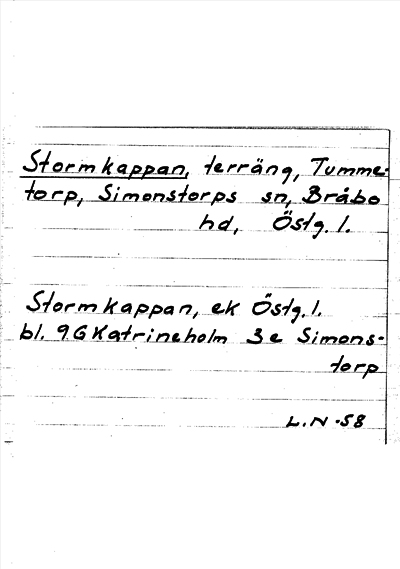 Stormkappan, terräng, Tumme-
torp, Simonstorps sn, Bråbo
hd, Östg. l.
Stormkappan, ek Östg. l.
bl. 9G Katrineholm 3e Simons-
torp
L.N -58